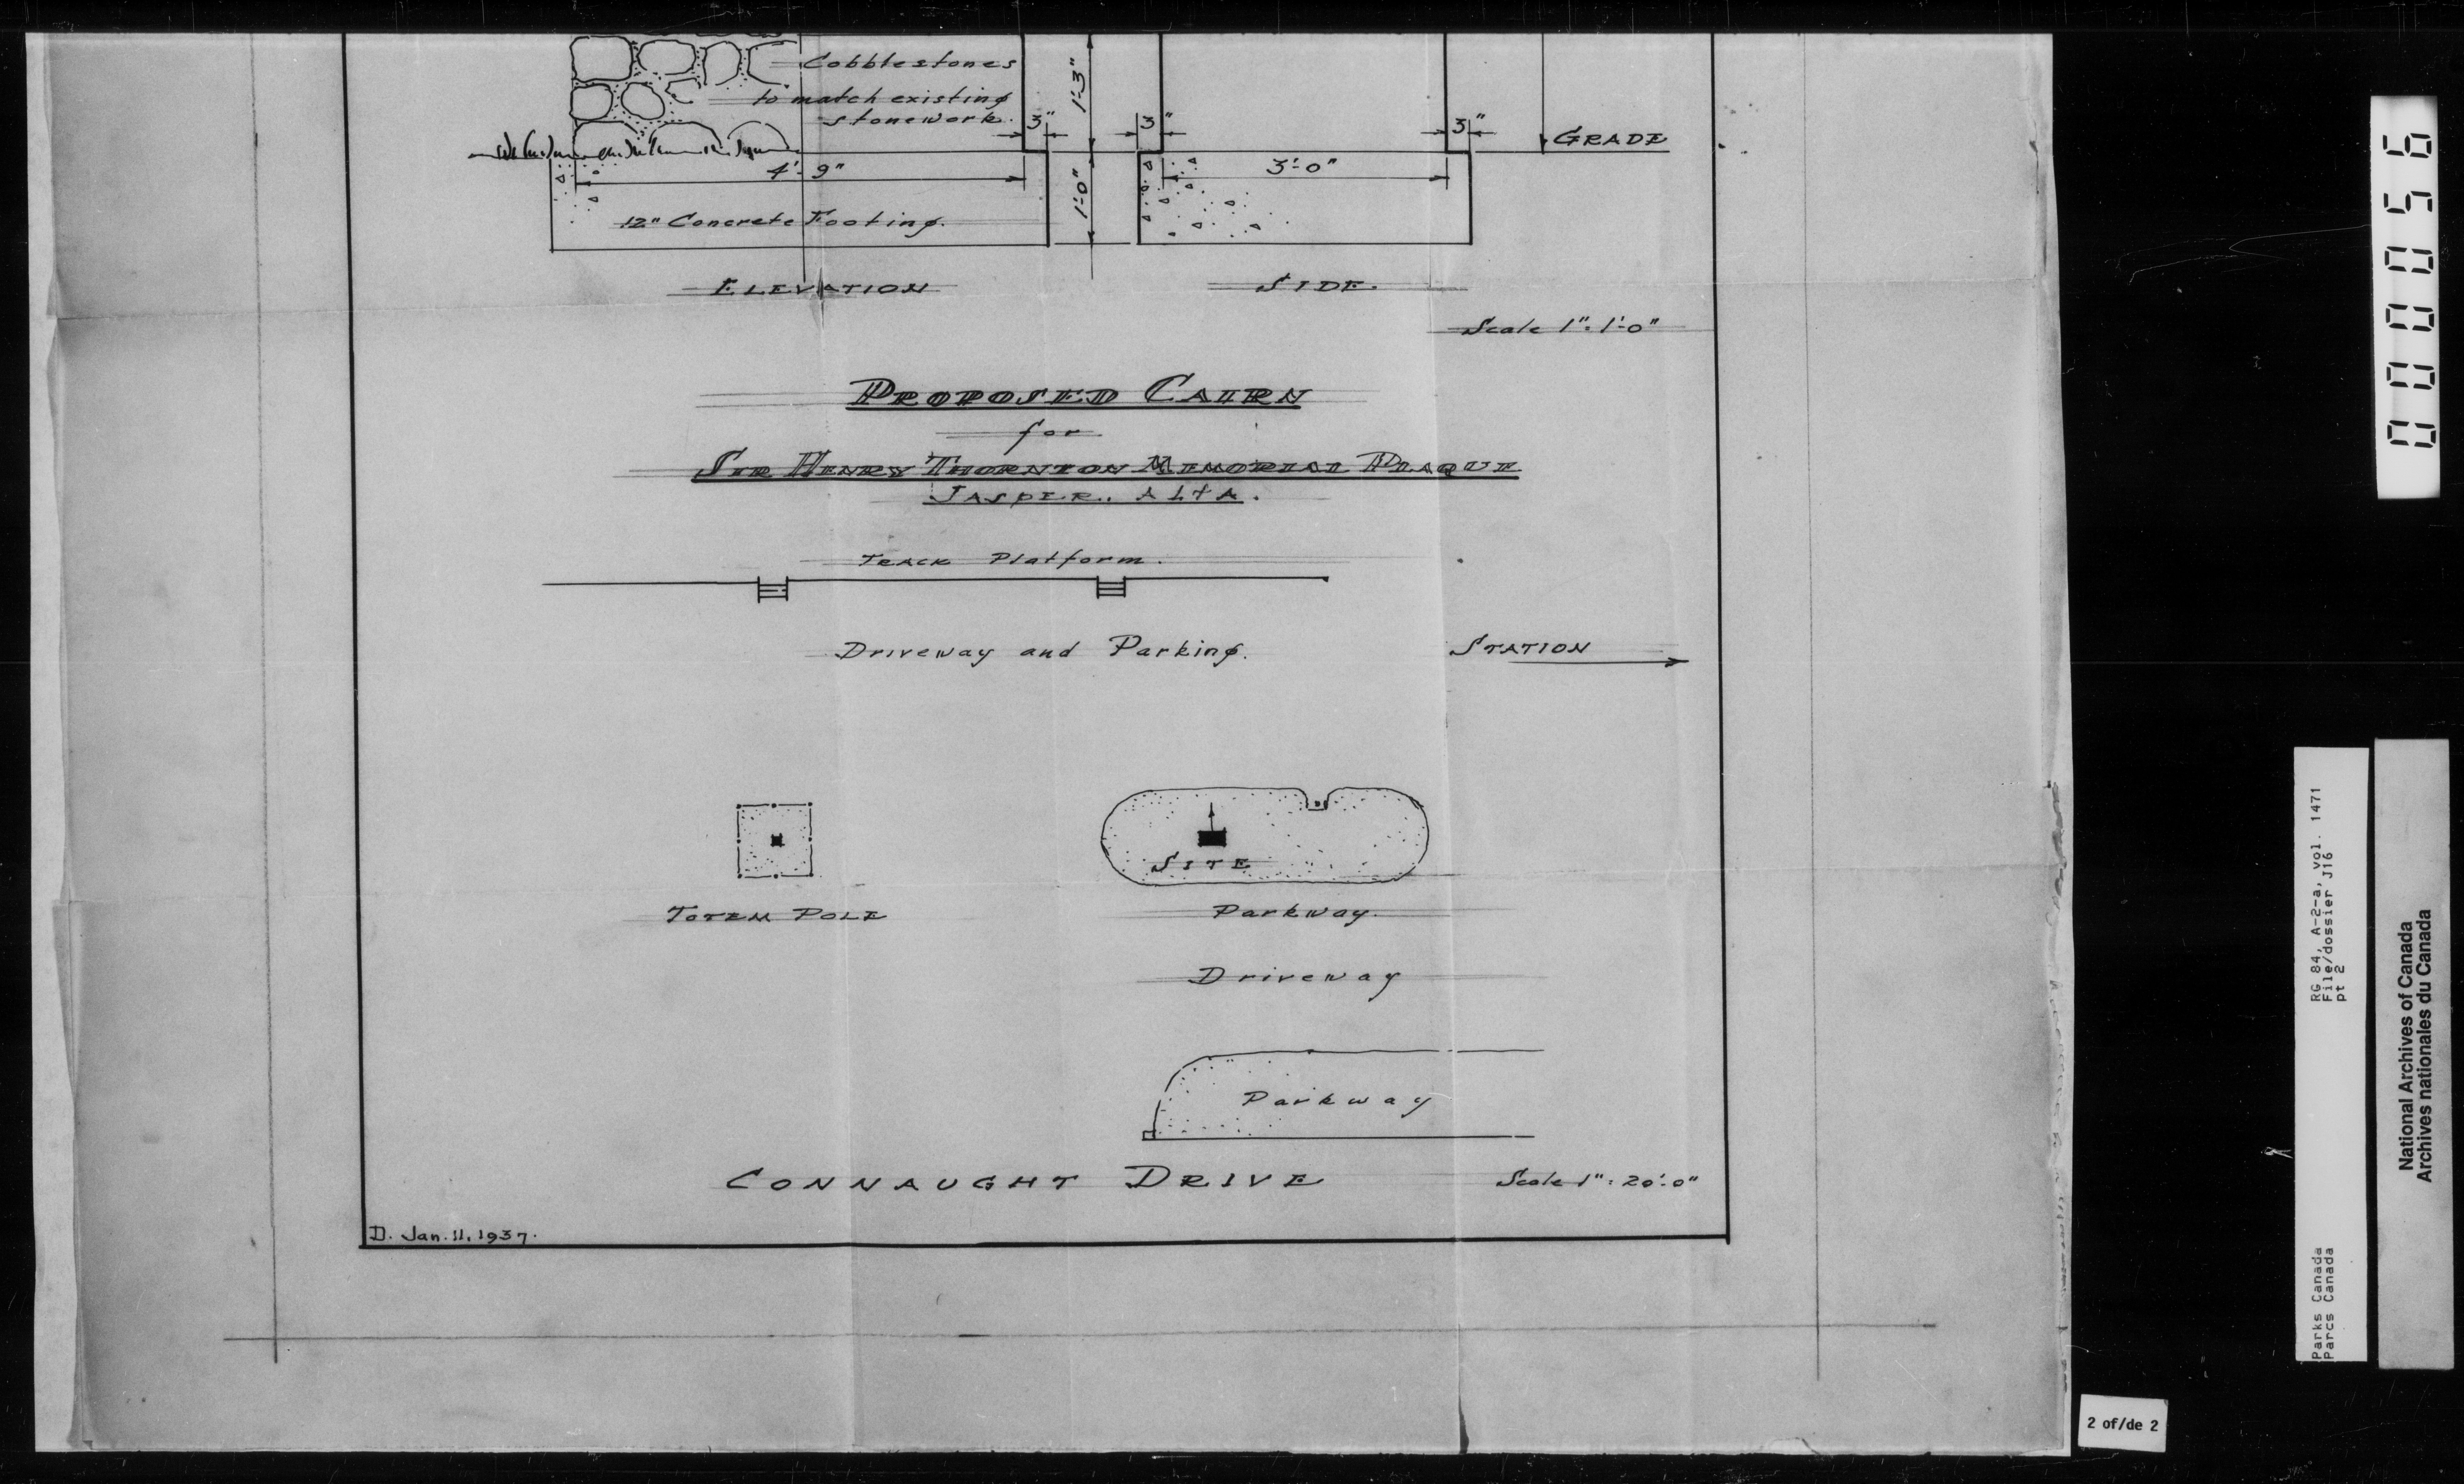 Cobblestones
to match existing
stonework.
1'-3"
3"
3"
3"
GRADE
4'-9"
3'-0"
1'-0"
12" Concrete Footing.
ELEVATION
SIDE.
Scale 1" = 1'-0"
PROPOSED CAIRN
for
SIR HENRY THORNTON MEMORIAL PLAQUE
JASPER., ALTA.
TRACK Platform.
Driveway and Parking.
STATION
SITE
TOTEM POLE
Parkway.
Driveway
Parkway
CONNAUGHT DRIVE
Scale 1" = 20'-0"
D. Jan. 11, 1937.
000056
RG 84, A-2-a, vol. 1471
File/dossier J16
pt 2
Parks Canada
Parcs Canada
National Archives of Canada
Archives nationales du Canada
2 of/de 2